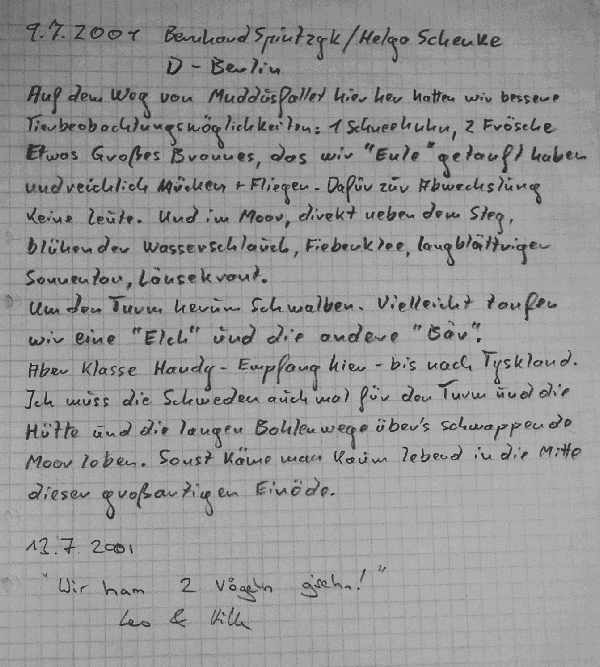 9.7.2001 Bernhard Spintzyk/Helga Schenke
D - Berlin
Auf dem Weg von Muddusfallet hier her hatten wir bessere
Tierbeobachtungsmöglichkeiten: 1 Schneehuhn, 2 Frösche
Etwas Großes Braunes, das wir "Eule" getauft haben
und reichlich Mücken + Fliegen - Dafür zur Abwechslung
Keine Leute. Und im Moor, direkt neben dem Steg,
blühender Wasserschlauch, Fieberklee, langblättriger
Sonnentau, Läusekraut.
Um den Turm herum Schwalben. Vielleicht taufen
wir eine "Elch" und die andere "Bär".
Aber Klasse Handy-Empfang hier - bis nach Tyskland.
Ich muss die Schweden auch mal für den Turm und die
Hütte und die langen Bohlenwege über's schwappende
Moor loben. Sonst käme man kaum lebend in die Mitte
dieser großartigen Einöde.
13.7 2001
"Wir ham 2 Vögeln g'sehn!"
Leo &